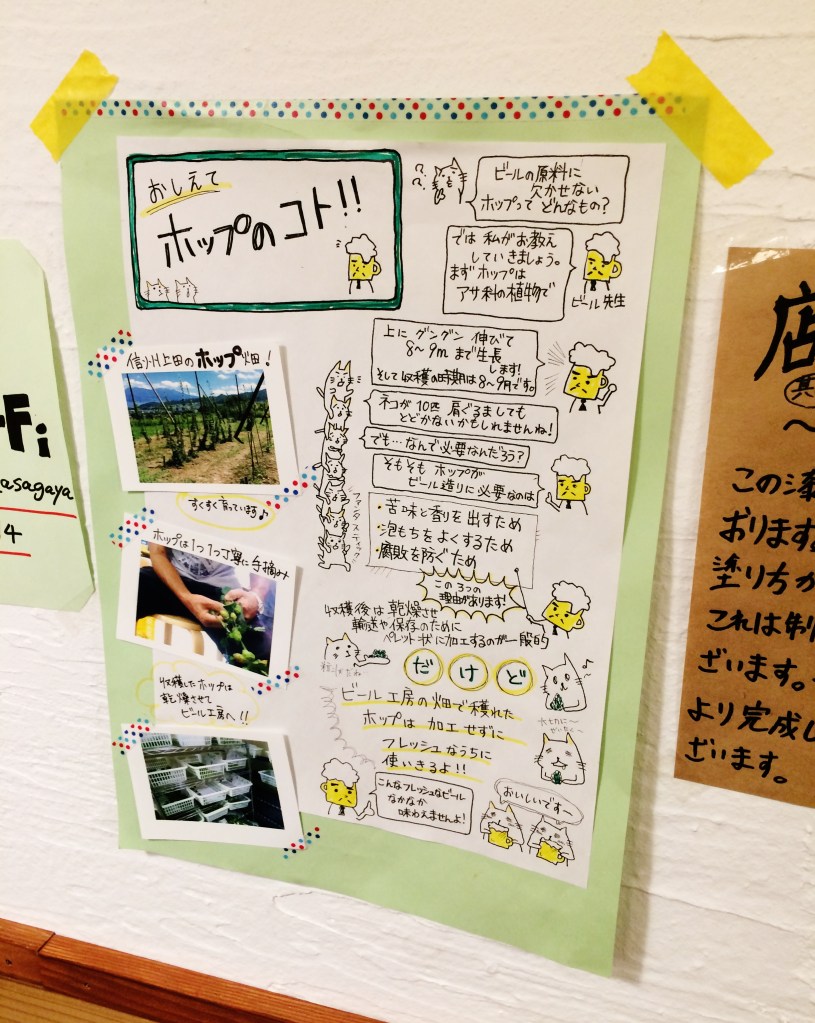 おしえて
ホップのコト!!
??
ビールの原料に
欠かせない
ホップって どんなもの?
では 私がお教え
していきましょう。
まずホップは
アサ科の植物で
ビール先生
上に グングン 伸びて
8〜9m まで生長
します!
そして収穫の時期は8〜9月です。
ネコが 10匹 肩ぐるましても
とどかないかもしれませんね!
ファンタスティック
でも…なんで必要なんだろう?
そもそも ホップが
ビール造りに必要なのは
・苦味と香りを出すため
・泡もちをよくするため
・腐敗を防ぐため
この3つの
理由があります!
収穫後は乾燥させ
輸送や保存のために
ペレット状に加工するのが一般的
だけど
ビール工房の畑で穫れた
ホップは 加工せずに
フレッシュなうちに
使いきるよ!!
こんなフレッシュなビール
なかなか
味わえませんよ!
おいしいですー
信州上田のホップ畑!
すくすく育っています♪
ホップは1つ1つ丁寧に手摘み
収穫したホップは
乾燥させて
ビール工房へ!!
Fi
asagaya
4
店
其
〜
この漆
おります
塗り方か
これは制
ざいます。
より完成し
ざいます。